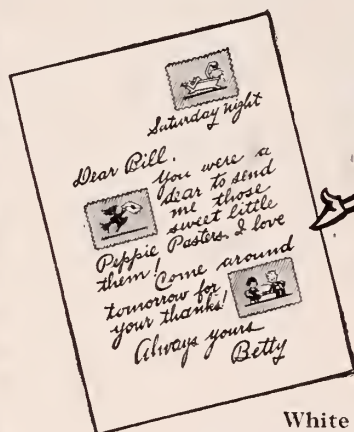 Saturday night
Dear Bill,
You were a
dear to send
me those
sweet little
Peppie Pasters. I love
them!
Come around
tomorrow for
your thanks!
Always yours
Betty
White